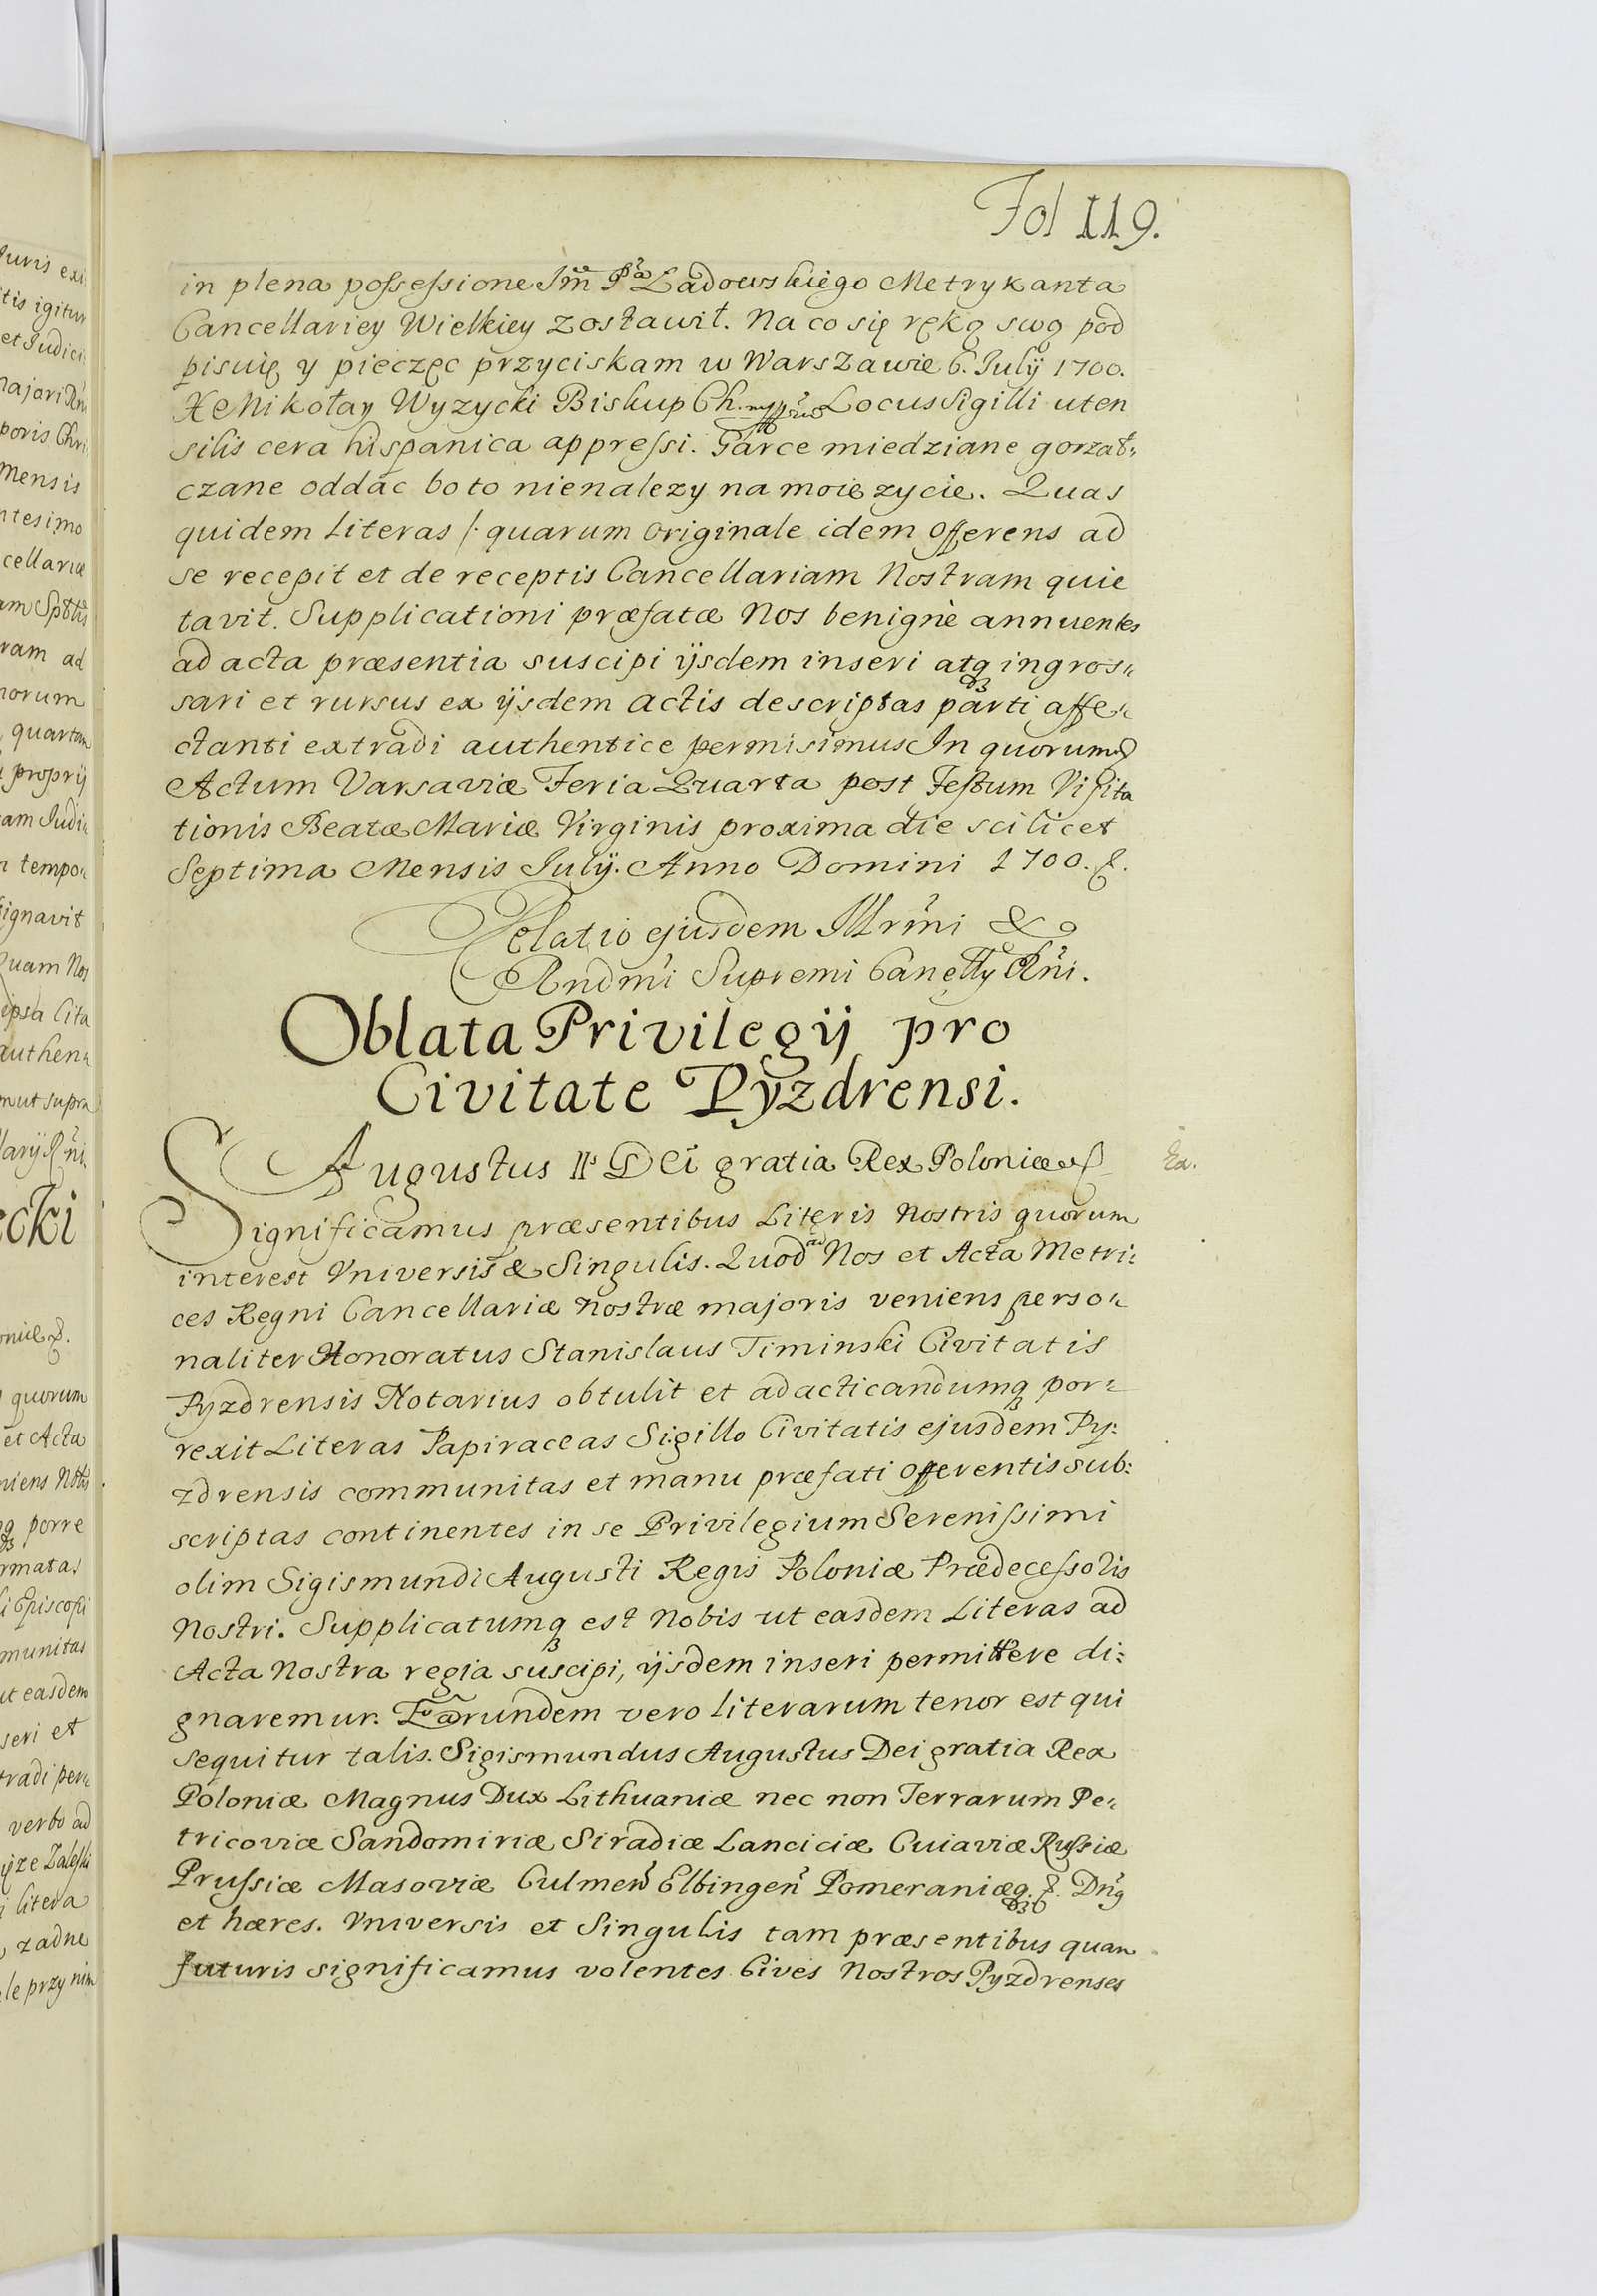 Fol 119.
in plena possessione Jm̃ Pa Ładowskiego Metrykanta
Cancellariey Wielkiey zostawił. Na co się ręką swą pod
pisuię y pieczęc przyciskam w Warszawie 6. Julÿ 1700.
X Mikołay Wyzycki Biskup Ch. mpp Locus Sigilli uten
silis cera hispanica appressi. Garce miedziane gorzał:
czane oddac bo to nienalezy na moie zycie. Quas
quidem Literas /. quarum originale idem offerens ad
se recepit et de receptis Cancellariam Nostram quie
tavit. Supplicationi præfatæ Nos benignè annuentes
ad acta præsentia suscipi ijsdem inseri atq ingros:
sari et rursus ex ijsdem actis descriptas parti affe:
ctanti extradi authentice permisimus In quorum &
Actum Varsaviæ Feria Quarta post Festum Visita
tionis Beatæ Mariæ Virginis proxima die scilicet
Septima Mensis Julÿ. Anno Domini 1700. &.
Relatio ejusdem Illrmi &
Rndmi Supremi Cancelly Rni.
Oblata Privilegij pro
Civitate Pyzdrensi.
Augustus IIs Dei gratia Rex Poloniæ &
Ex.
Significamus præsentibus Literis Nostris quorum
interest Vniversis & Singulis. Quod ad Nos et Acta Metri:
ces Regni Cancellariæ nostræ majoris veniens perso:
naliter Honoratus Stanislaus Timinski Civitatis
Pyzdrensis Notarius obtulit et ad acticandumq por:
rexit Literas Papiraceas Sigillo Civitatis ejusdem Py:
zdrensis communitas et manu præfati offerentis sub:
scriptas continentes in se Privilegium Serenissimi
olim Sigismundi Augusti Regis Poloniæ Prædecessoris
Nostri. Supplicatumq est Nobis ut easdem Literas ad
Acta Nostra regia suscipi, ijsdem inseri permittere di:
gnaremur. Earundem vero literarum tenor est qui
sequitur talis. Sigismundus Augustus Dei gratia Rex
Poloniæ Magnus Dux Lithuaniæ nec non Terrarum Pe:
tricoviæ Sandomiriæ Siradiæ Lanciciæ Cuiaviæ Russiæ
Prussiæ Masoviæ Culmen Elbingen Pomeraniæq. &. Dng
et hæres. Vniversis et Singulis tam præsentibus quam
futuris significamus volentes Cives Nostros Pyzdrenses